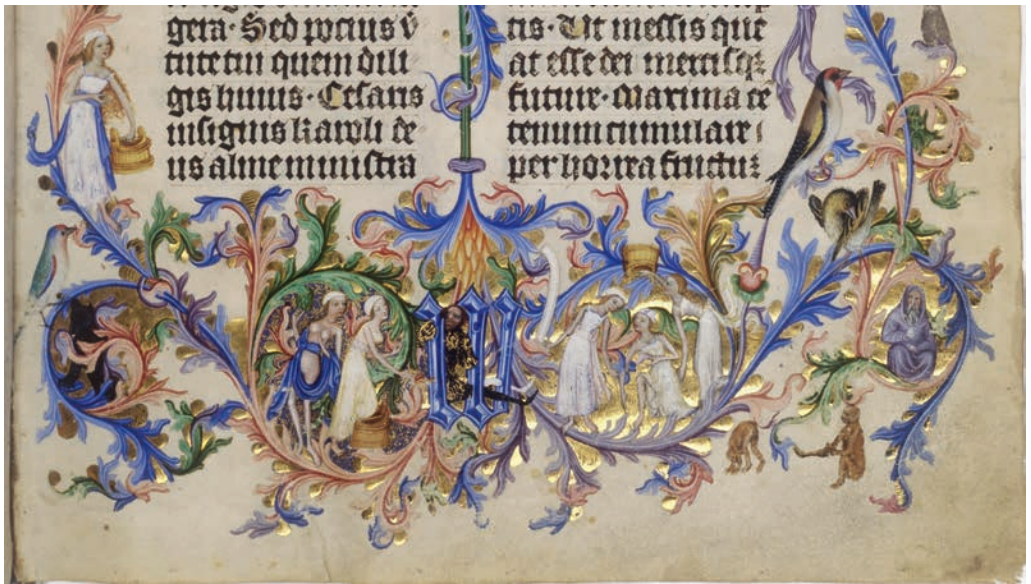 gera· Sed pocius v̄
tute tui quem dili
gis huius· Cesaris
insignis karoli de
us alme ministra
tis· Ut messis que
at esse dei mercisqꝫ
future· Maxima ce
tenum cumulare
per horrea fructuꝫ
W